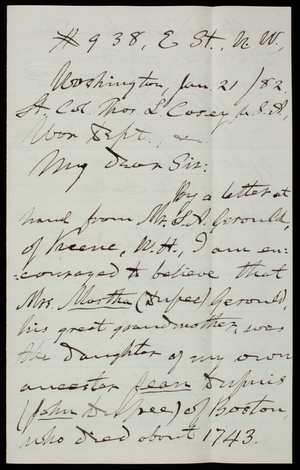 # 938, E St., N.W.,
Washington, Jan. 21/82.
Lt Col. Thos. L Casey, U.S.A,
War Dept., &c
My Dear Sir:
By a letter at
hand from Mr. S.A. Gerould,
of Keene, N.H., I am en-
:couraged to believe that
Mrs. Martha (Dupee) Gerould,
his great grandmother, was
the daughter of my own
ancestor Jean Dupuis
(John Dupee) of Boston,
who died about 1743.